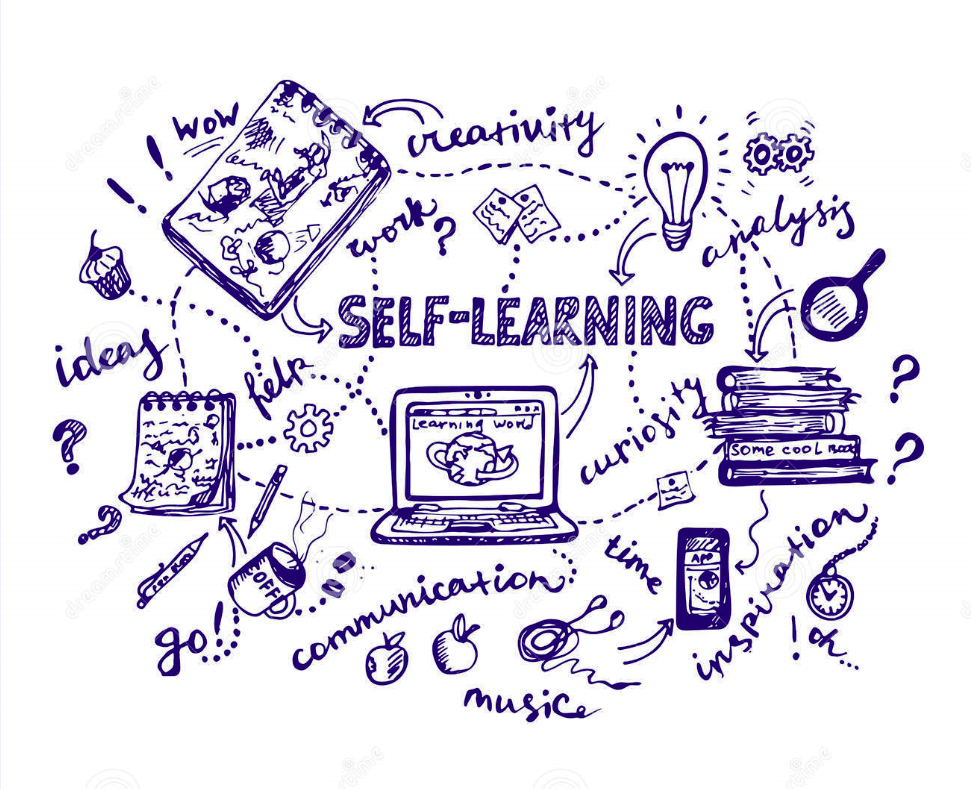 wow
creativity
work?
analysis
SELF-LEARNING
ideas
help
Learning World
curiosity
SOME COOL BOOK
COFF
time
APP
inspiration
communication
go!
! oh...
music
dreamstime